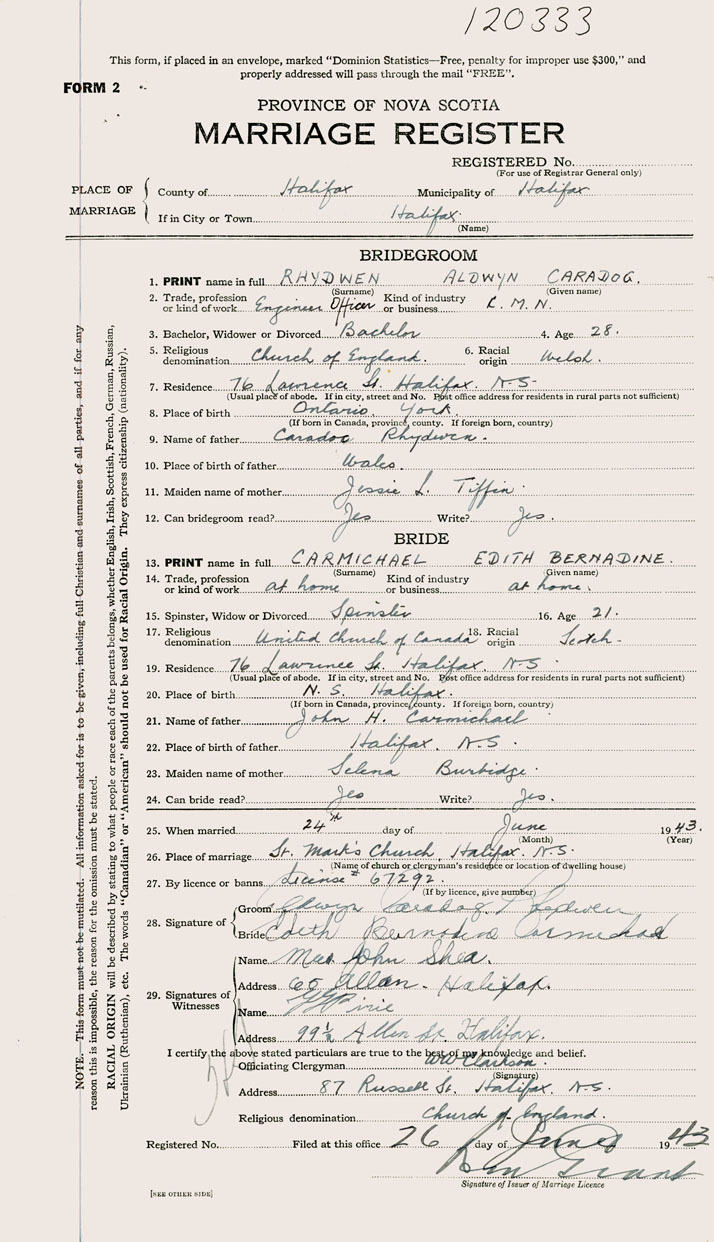 120333
This form, if placed in an envelope, marked "Dominion Statistics—Free, penalty for improper use $300," and
properly addressed will pass through the mail "FREE".
FORM 2
PROVINCE OF NOVA SCOTIA
MARRIAGE REGISTER
REGISTERED No.
(For use of Registrar General only)
PLACE OF MARRIAGE
County of Halifax Municipality of Halifax
If in City or Town Halifax
(Name)
BRIDEGROOM
1. PRINT name in full RHYDWEN ALDWYN CARADOG.
(Surname) (Given name)
2. Trade, profession or kind of work Engineer Officer Kind of industry or business R.M.N.
3. Bachelor, Widower or Divorced Bachelor 4. Age 28.
5. Religious denomination Church of England. 6. Racial origin Welsh.
7. Residence 76 Lawrence St. Halifax. N.S.
(Usual place of abode. If in city, street and No. Post office address for residents in rural parts not sufficient)
8. Place of birth Ontario, York.
(If born in Canada, province, county. If foreign born, country)
9. Name of father Caradoc Rhydwen.
10. Place of birth of father Wales.
11. Maiden name of mother Jessie L. Tiffin.
12. Can bridegroom read? Yes Write? Yes.
BRIDE
13. PRINT name in full CARMICHAEL EDITH BERNADINE.
(Surname) (Given name)
14. Trade, profession or kind of work at home Kind of industry or business at home.
15. Spinster, Widow or Divorced Spinster 16. Age 21.
17. Religious denomination United Church of Canada 18. Racial origin Scotch.
19. Residence 76 Lawrence St. Halifax N.S
(Usual place of abode. If in city, street and No. Post office address for residents in rural parts not sufficient)
20. Place of birth N.S. Halifax.
(If born in Canada, province, county. If foreign born, country)
21. Name of father John H. Carmichael
22. Place of birth of father Halifax. N.S.
23. Maiden name of mother Selena Burbidge.
24. Can bride read? Yes Write? Yes.
25. When married 24th day of June 1943.
(Month) (Year)
26. Place of marriage St. Mark's Church, Halifax. N.S.
(Name of church or clergyman's residence or location of dwelling house)
27. By licence or banns License # 67292.
(If by licence, give number)
28. Signature of
Groom Aldwyn Caradog Rhydwen
Bride Edith Bernadine Carmichael
29. Signatures of Witnesses
Name Mrs John Shea.
Address 65 Allan. Halifax.
Name Pirie
Address 99½ Allen St. Halifax.
I certify the above stated particulars are true to the best of my knowledge and belief.
Officiating Clergyman Clarkson
(Signature)
Address 87 Russell St. Halifax. N.S.
Religious denomination Church of England.
Registered No. Filed at this office 26 day of June 1943
Grant
Signature of Issuer of Marriage Licence
[SEE OTHER SIDE]
NOTE.—This form must not be mutilated. All information asked for is to be given, including full Christian and surnames of all parties, and if for any
reason this is impossible, the reason for the omission must be stated.
RACIAL ORIGIN will be described by stating to what people or race each of the parents belongs, whether English, Irish, Scottish, French, German, Russian,
Ukrainian (Ruthenian), etc. The words "Canadian" or "American" should not be used for Racial Origin. They express citizenship (nationality).